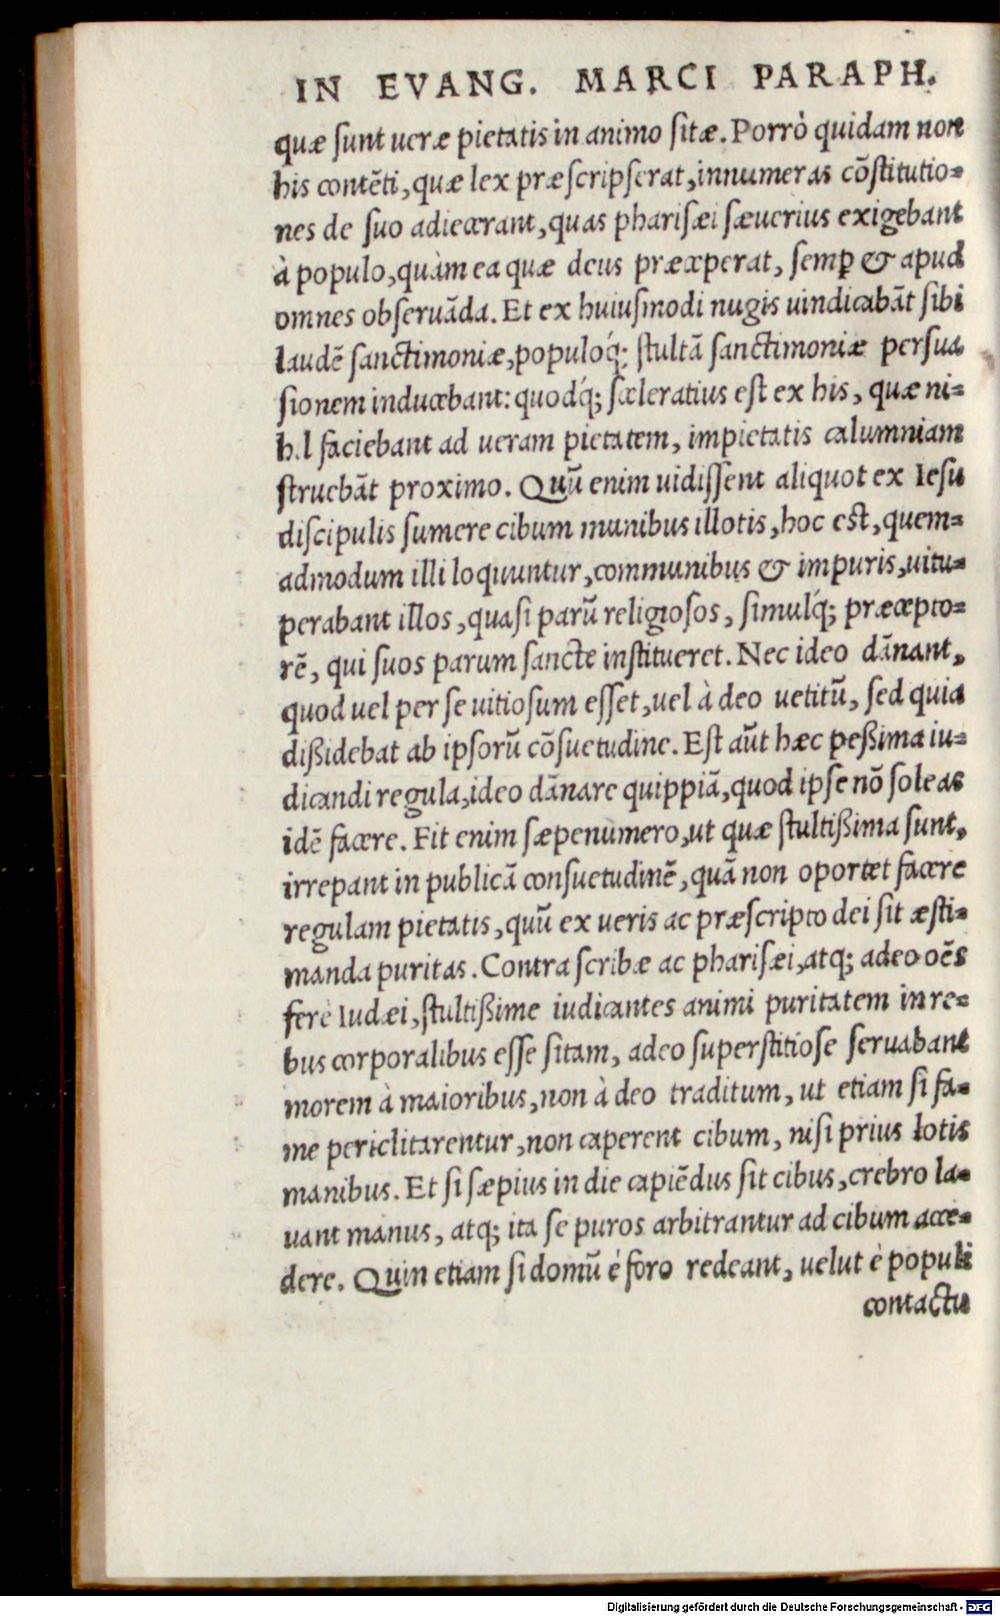 IN EVANG. MARCI PARAPH.
quæ sunt ueræ pietatis in animo sitæ. Porrò quidam non
his contẽti, quæ lex præscripserat, innumeras cõstitutio-
nes de suo adiecerant, quas pharisæi sæuerius exigebant
à populo, quàm ea quæ deus præceperat, semꝑ & apud
omnes obseruãda. Et ex huiusmodi nugis uindicabãt sibi
laudẽ sanctimoniæ, populoq́; stultã sanctimoniæ persua
sionem inducebant: quodq́; sceleratius est ex his, quæ ni-
hil faciebant ad ueram pietatem, impietatis calumniam
struebãt proximo. Quũ enim uidissent aliquot ex Iesu
discipulis sumere cibum manibus illotis, hoc est, quem-
admodum illi loquuntur, communibus & impuris, uitu-
perabant illos, quasi parũ religiosos, simulq́; præcepto-
rẽ, qui suos parum sancte institueret. Nec ideo dãnant,
quod uel per se uitiosum esset, uel à deo uetitũ, sed quia
dißidebat ab ipsorũ cõsuetudine. Est aũt hæc peßima iu-
dicandi regula, ideo dãnare quippiã, quod ipse nõ soleas
idẽ facere. Fit enim sæpenumero, ut quæ stultißima sunt,
irrepant in publicã consuetudinẽ, quã non oportet facere
regulam pietatis, quũ ex ueris ac præscripto dei sit æsti-
manda puritas. Contra scribæ ac pharisæi, atq; adeo oẽs
ferè Iudæi, stultißime iudicantes animi puritatem in re-
bus corporalibus esse sitam, adeo superstitiose seruabant
morem à maioribus, non à deo traditum, ut etiam si fa-
me periclitarentur, non caperent cibum, nisi prius lotis
manibus. Et si sæpius in die capiẽdus sit cibus, crebro la-
uant manus, atq; ita se puros arbitrantur ad cibum acce-
dere. Quin etiam si domũ è foro redeant, uelut è populi
contactu
Digitalisierung gefördert durch die Deutsche Forschungsgemeinschaft - DFG